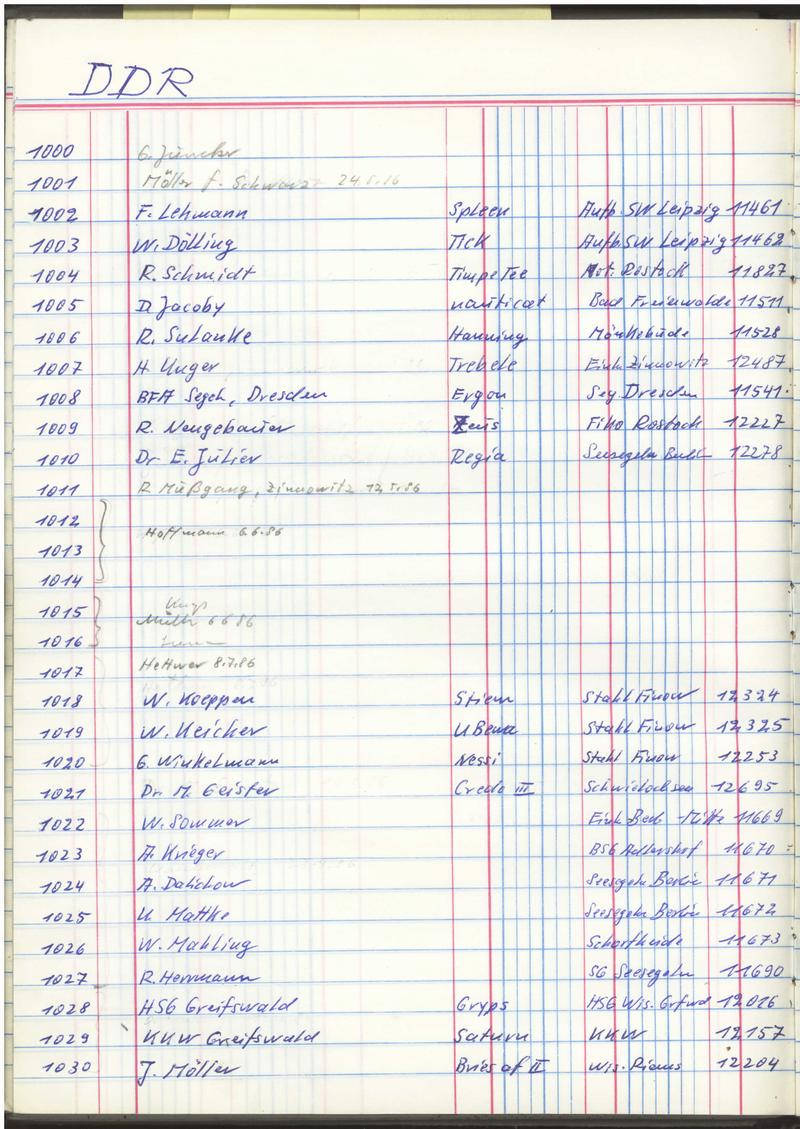 DDR
1000 G. Juncker
1001 Möller f. Schwarz 24.5.86
1002 F. Lehmann Spleen Aufb. SW Leipzig 11461
1003 W. Dölling Tick Aufb. SW Leipzig 11462
1004 R. Schmidt Timpe Tee Mot. Rostock 11827
1005 D. Jacoby nauticat Bad Freienwalde 11511
1006 R. Sulanke Hanning Mönkebude 11528
1007 H. Unger Trebele Einh. Zinnowitz 12487
1008 BFA Segeln, Dresden Ergon Seg. Dresden 11541
1009 R. Neugebauer Zeus Fiko Rostock 12227
1010 Dr. E. Julier Regia Seesegeln 12278
1011 R. Mußgang, Zinnowitz 12.5.86
1012
Hoffmann 6.6.86
1013
1014
1015
6.6.86
1016
1017 Hettwer 8.7.86
1018 W. Koeppen Stiem Stahl Finow 12324
1019 W. Keicher U Bema Stahl Finow 12325
1020 G. Winkelmann Nessi Stahl Finow 12253
1021 Dr. M. Geister Credo III Schwielochsee 12695
1022 W. Sommer Einh. Berl.-Mitte 11669
1023 A. Krieger BSG Adlershof 11670
1024 A. Dalichow Seesegeln Berlin 11671
1025 U. Mattke Seesegeln Berlin 11672
1026 W. Mahling Schorfheide 11673
1027 R. Herrmann SG Seesegeln 11690
1028 HSG Greifswald Gryps HSG Wis. Grfwd 12016
1029 KKW Greifswald Saturn KKW 12157
1030 J. Möller Briesaf II Wis. Riems 12204